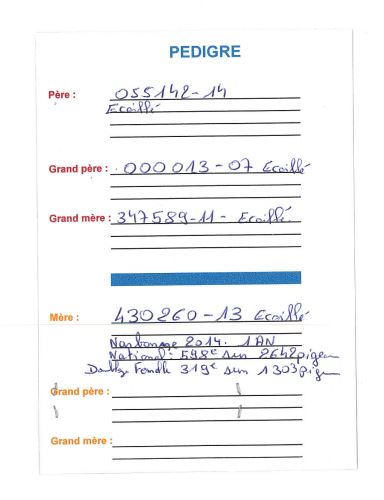 PEDIGRE
Père : 055142-14
Ecaillé
Grand père : 000013-07 Ecaillé
Grand mère : 347589-11- Ecaillé
Mère : 430260-13 Ecaillé
Narbonne 2014. 1AN
National: 598e sur 2642 pigeon
Fondk 319e sur 1303 pigeon
Grand père :
Grand mère :